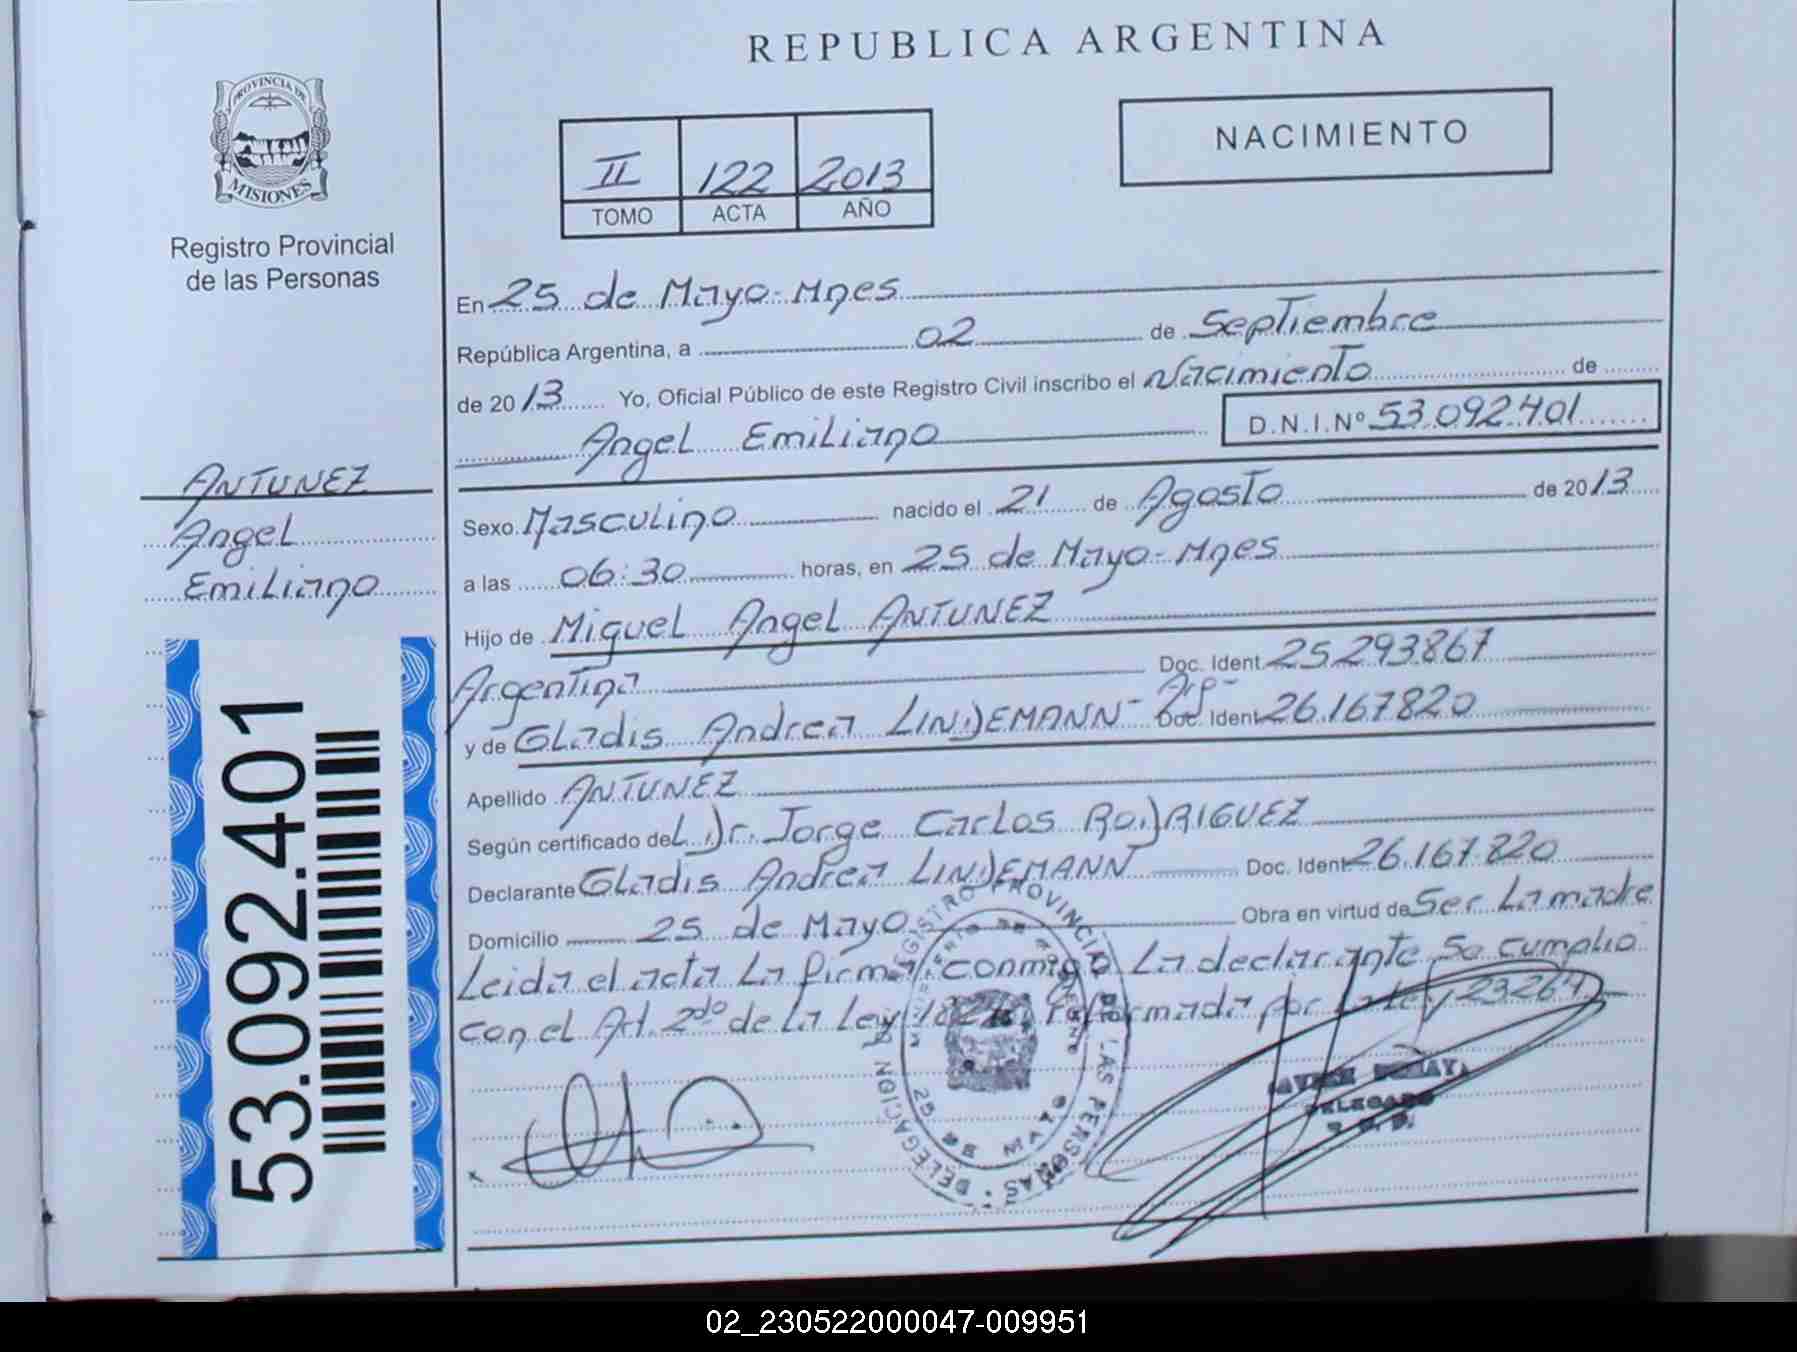 REPUBLICA ARGENTINA
PROVINCIA DE
MISIONES
Registro Provincial
de las Personas
NACIMIENTO
II 122 2013
TOMO ACTA AÑO
En 25 de Mayo-Mnes
República Argentina, a 02 de Septiembre
de 2013 Yo, Oficial Público de este Registro Civil inscribo el Nacimiento de
Angel Emiliano D.N.I.Nº 53.092.401
ANTUNEZ
Angel
Emiliano
53.092.401
Sexo Masculino nacido el 21 de Agosto de 2013
a las 06:30 horas, en 25 de Mayo-Mnes
Hijo de Miguel Angel ANTUNEZ
Argentina Doc. Ident. 25.293.867
y de Gladis Andrea LINDEMANN - Arg- Doc. Ident. 26.167.820
Apellido ANTUNEZ
Según certificado del Dr. Jorge Carlos RODRIGUEZ
Declarante Gladis Andrea LINDEMANN Doc. Ident. 26.167.820
Domicilio 25 de Mayo Obra en virtud de Ser La madre
Leida el acta La firma conmigo La declarante Se cumplio
con el Art. 2do de La Ley reformada por La Ley 23264
REGISTRO PROVINCIAL DE LAS PERSONAS
DELEGACION
25 DE MAYO
DELEGADO
02_230522000047-009951